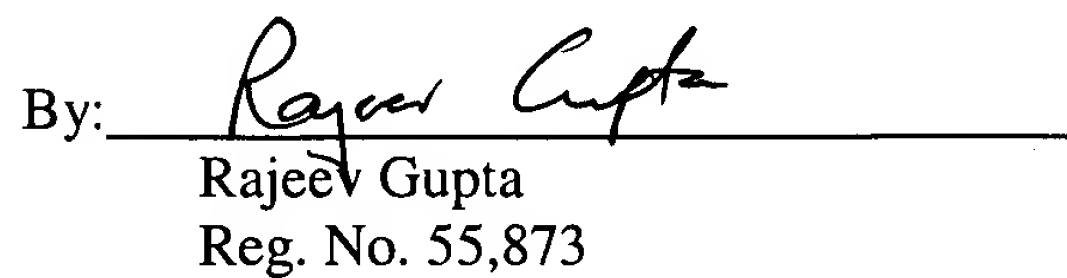 By: Rajeev Gupta
Rajeev Gupta
Reg. No. 55,873